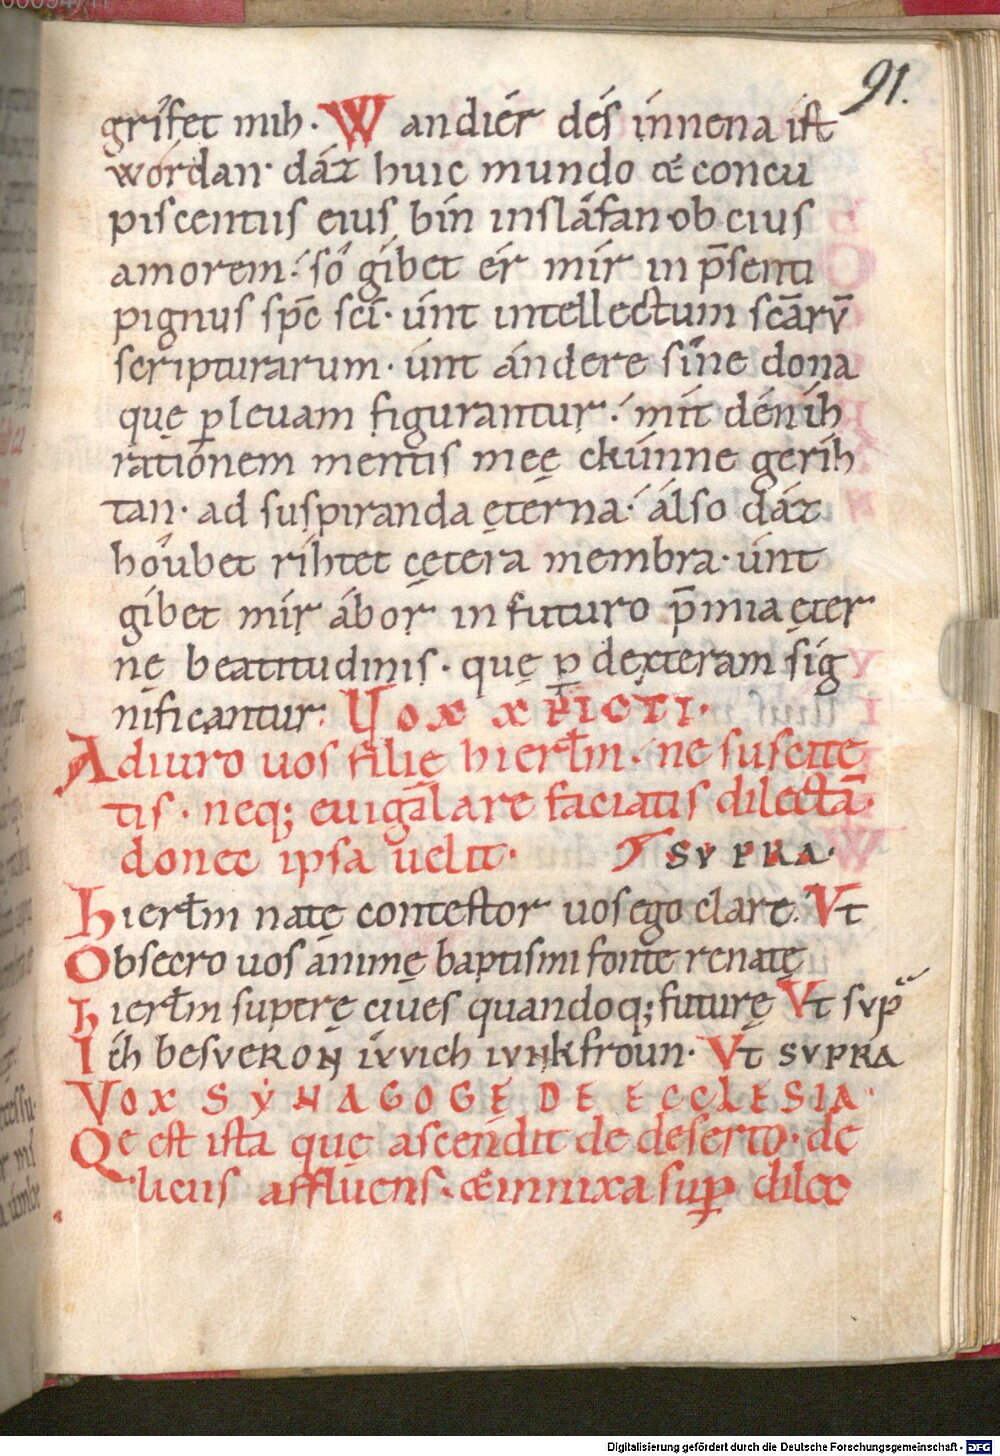 91.
grífet mih· Wandiér dés ínnena ist
wórdan· dáz huic mundo & concu
piscentiis eius bín inslâfan ob eius
amorem· só gíbet ér mír in p̄senti
pignus sp̄c sc̄i· únt intellectum scārv̄
scripturarum· únt ándere síne dona
quę ꝑ leuam figurantur· mít dén ih
rationem mentis meę ckúnne geríh
tan· ad suspiranda ętérna· álso dáz
hóubet ríhtet cętera membra· únt
gíbet mír ábor in futuro p̄mia ęter
nę beatitudinis· quę ꝑ dexteram sig
nificantur· Vox xp̄icti·
Adiuro uos filię hierl̄m· ne suscite
tis· neq; euigilare faciatis dilectā·
donec ipsa uelit· SVPRA·
hierl̄m natę contestor uos ego clare. Vt
Obsecro uos animę baptismi fonte renatę
hierl̄m superę ciues quandoq; futurę Vt svp̄
Ich besveron ivvich ivnkfroun· Vt svpra
Vox SYNAGOGE DE ECCLESIA·
Qe est ista quę ascendit de deserto· de
liciis affluens· & innixa suꝑ dilec
Digitalisierung gefördert durch die Deutsche Forschungsgemeinschaft - DFG